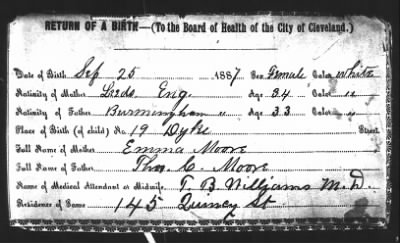 RETURN OF A BIRTH—(To the Board of Health of the City of Cleveland.)
Date of Birth Sep 25 1887 Sex Female Color White
Nativity of Mother Leeds Eng. Age 34 Color "
Nativity of Father Burmingham " Age 33 Color "
Place of Birth (of child) No. 19 Dyke Street
Full Name of Mother Emma Moore
Full Name of Father Tho. C. Moore
Name of Medical Attendant or Midwife, T. B Williams M.D.
Residence of Same 145 Quincy St